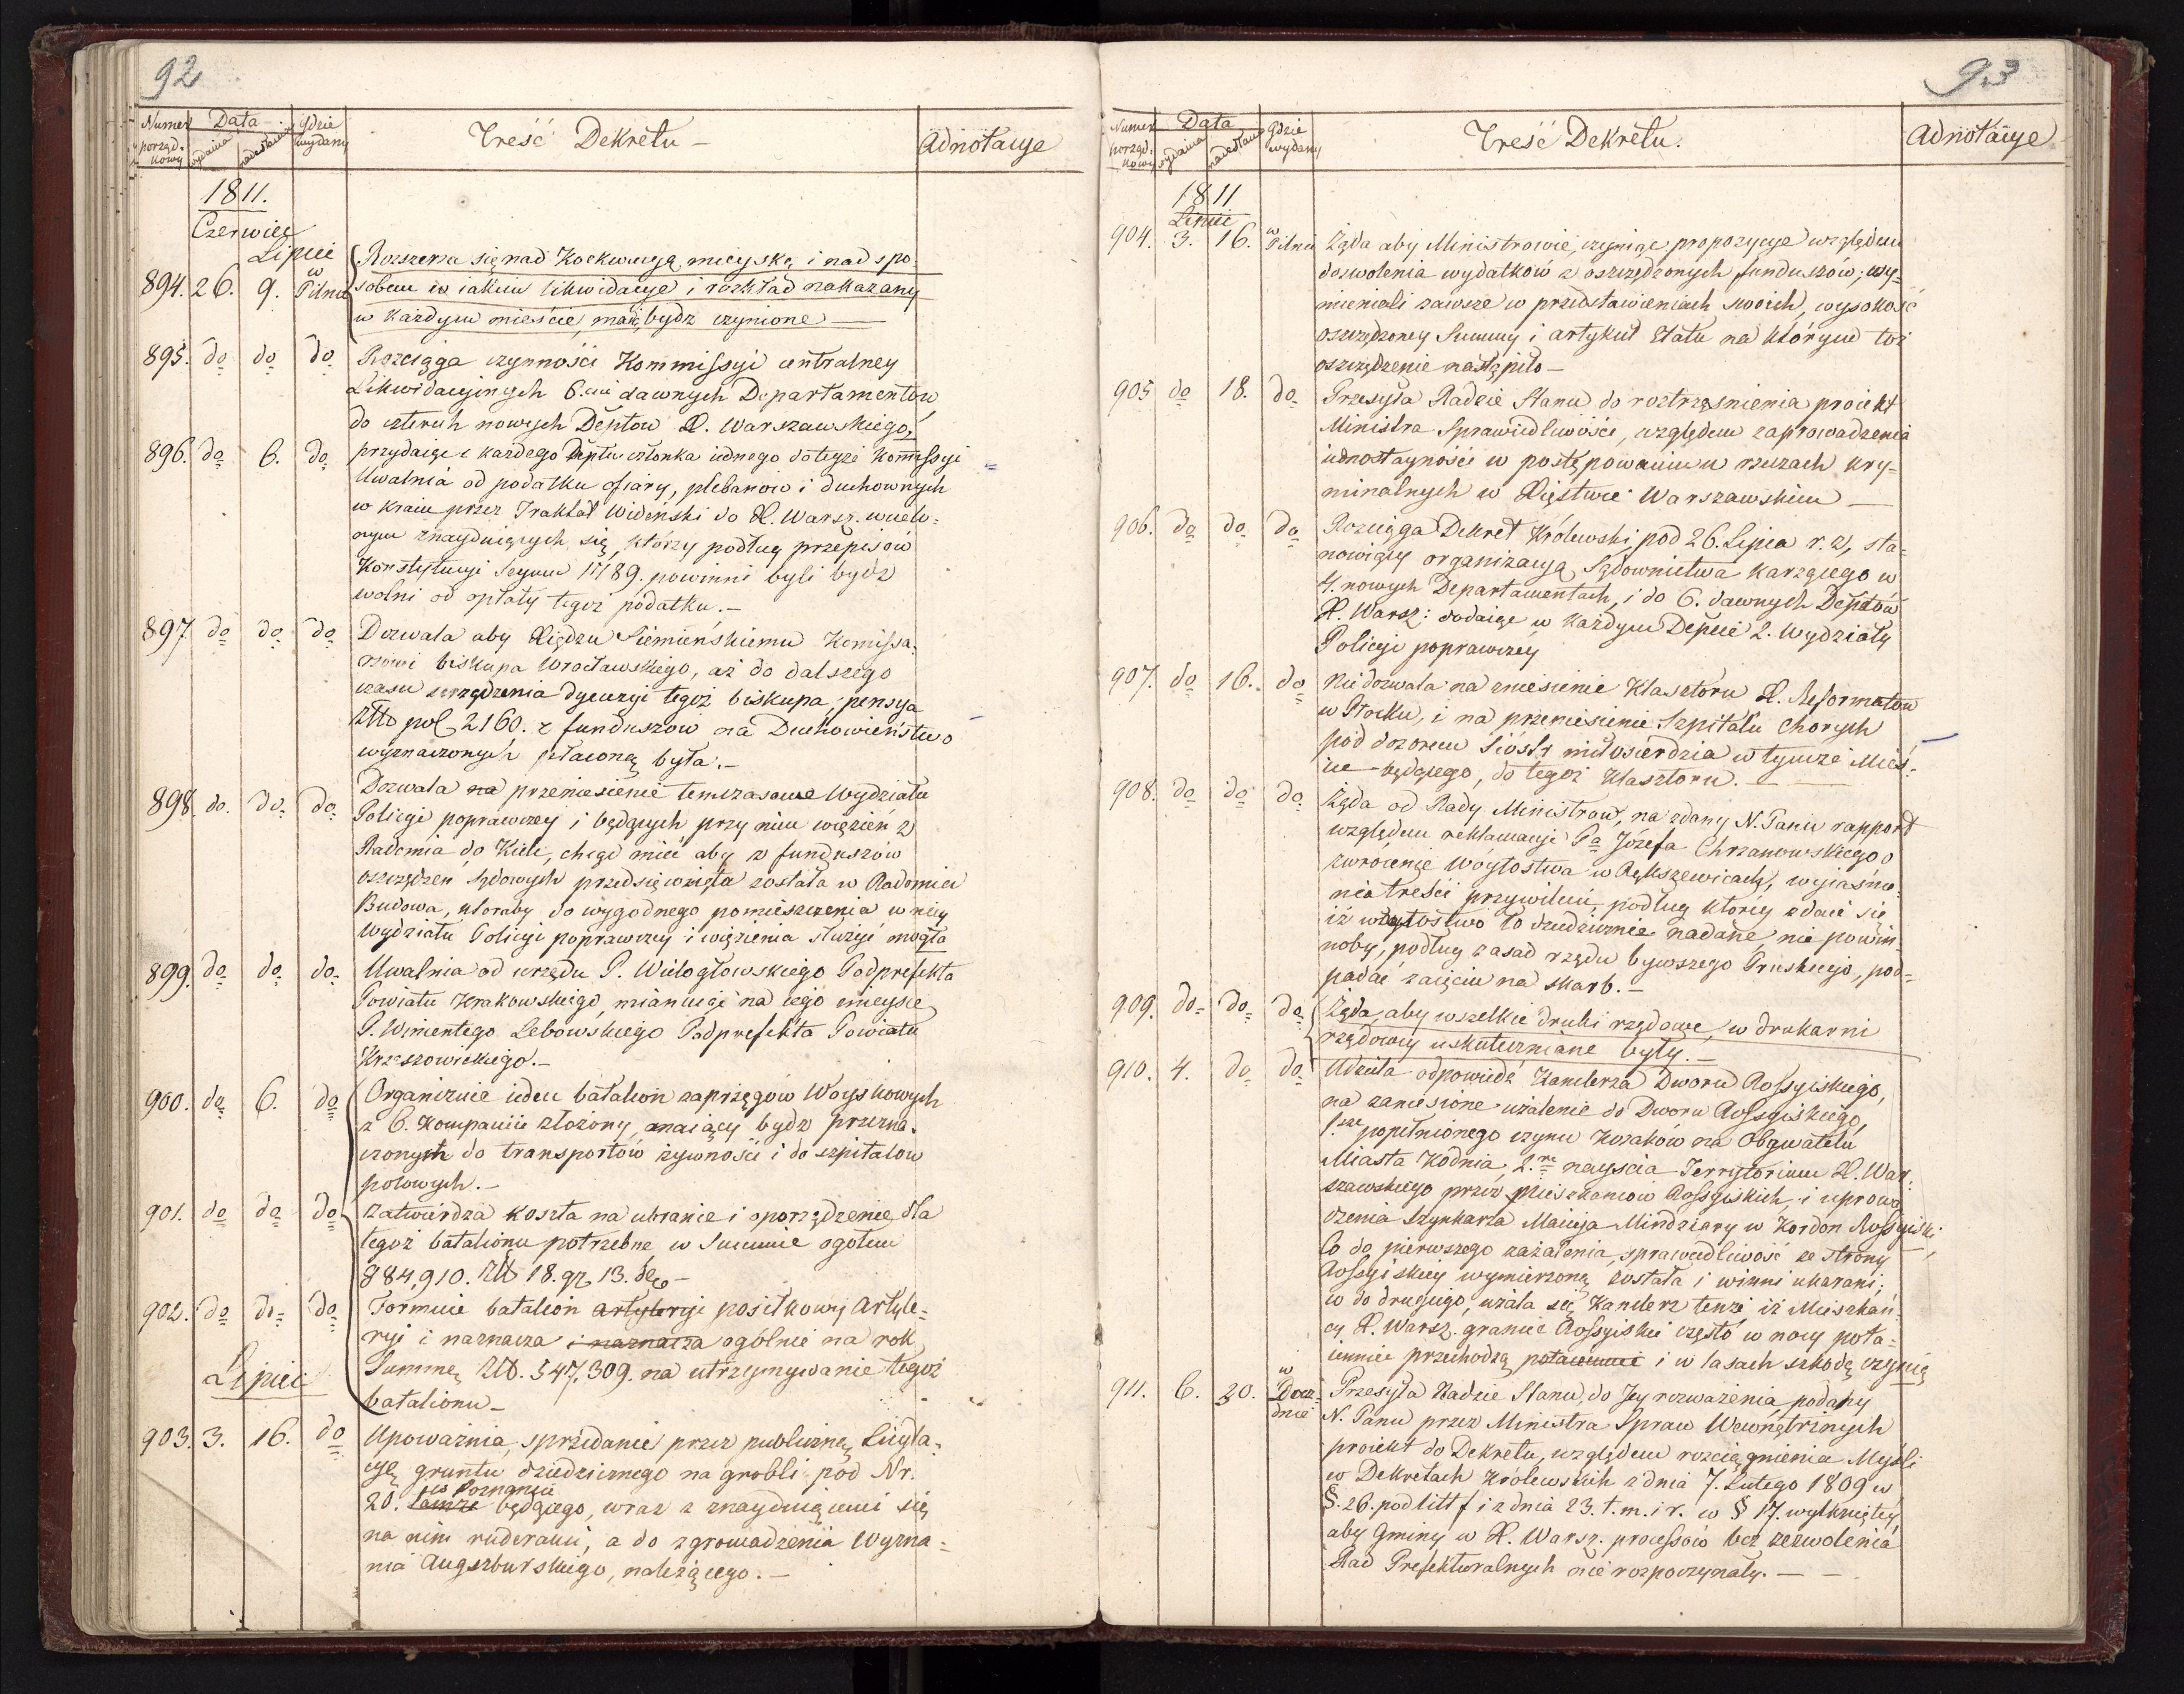 92
Numer porząd. kowy
Data
wydania
nadesłania
gdzie wydany
Treść Dekretu –
Adnotacye
1811.
Czerwiec
Lipiec
894. 26. 9. w Pilnic Rozszerza się nad Koekwacyą mieyską i nad spo-
sobem w iakim likwidacye i rozkład nakazany
w każdym mieście, maią bydź czynione —
895. do do do Rozciąga czynności Kommissyi centralney
Likwidacyinych 6.ciu dawnych Departamentów
do czterech nowych Deptow X. Warszawskiego,
896. do 6. do przydaiąc z każdego Deptu członka iednego do teyże Kommissyi
Uwalnia od podatku ofiary, plebanow i duchownych
w kraiu przez Traktat Wideński do X. Warsz. wcielo-
nym znayduiących się, którzy podług przepisów
Konstytucyi Seymu 1789. powinni byli bydź
wolni od opłaty tegoż podatku. –
897 do do do Dozwala aby Xiędzu Siemieńskiemu Komissa-
rzowi biskupa Wrocławskiego, aż do dalszego
czasu urządzenia dyecezyi tegoż biskupa, pensya
Złto pol 2160. z funduszów na Duchowieństwo
wyznaczonych płaconą była. –
898. do. do. do. Dozwala na przeniesienie temczasowe Wydziału
Policyi poprawczey i będących przy nim więzień z
Radomia do Kielc, chcąc mieć aby z funduszów
oszczędzeń sądowych przedsięwzięta została w Radomiu
Budowa, któraby do wygodnego pomieszczenia w niey
Wydziału Policyi poprawczey i więzienia służyć mogła
899. do do do. Uwalnia od urzędu P. Wielogłowskiego Podprefekta
Powiatu Krakowskiego, mianuiąc na iego mieysce
P. Wincentego Lebowskiego Podprefekta Powiatu
Krzeszowickiego. –
900. do 6. do Organizuie ieden batalion zaprzęgów Woyskowych
z 6. Kompanii złożony, maiący bydź przezna-
czonych do transportów żywności i do szpitalow
polowych. –
901. do do do zatwierdza koszta na ubranie i oporządzenie dla
tegoż batalionu potrzebne w Summie ogołem
884,910. Złt 18. gr 13. den –
902. do do do Formuie batalion artyleryi posiłkowy Artyle-
ryi i naznacza i naznacza ogólnie na rok
Summę Złt. 547,309. na utrzymywanie tegoż
batalionu –
Lipiec
903. 3. 16. do Upoważnia sprzedanie przez publiczną Licyta-
cyę gruntu dziedzicznego na grobli pod Nr.
w Poznaniu
20. tamże będącego, wraz z znayduiącemi się
na nim ruderami, a do zgromadzenia Wyzna-
nia Augszburskiego, należącego. –
93
Numer porząd. kowy
Data
wydania
nadesłania
gdzie wydany
Treść Dekretu.
Adnotacye
1811
Lipiec
904. 3. 16. w Pilnic Żąda aby Ministrowie, czyniąc propozycye względem
dozwolenia wydatków z oszczędzonych funduszow, wy-
mieniali zawsze w przedstawieniach swoich, wysokość
oszczędzoney Summy i artykuł Etatu na którym toż
oszczędzenie nastąpiło –
905 do 18. do Przesyła Radzie Stanu do roztrząśnienia proiekt
Ministra Sprawiedliwości, względem zaprowadzenia
iednostayności w postępowaniu w rzeczach kry-
minalnych w Xięstwie Warszawskim —
906. do do do Rozciąga Dekret Królewski pod 26. Lipca r. z, sta-
nowiący organizacyą Sądownictwa karzącego w
4. nowych Departamentach, i do 6. dawnych Deptów
X. Warsz: dodaiąc w każdym Depcie 2. Wydziały
Policyi poprawczey
907. do 16. do Nie dozwala na zniesienie Klasztoru X. Reformatów
w Płocku, i na przeniesienie Szpitalu chorych
pod dozorem Sióstr miłosierdzia w tymże Mieś-
cie będącego, do tegoż Klasztoru. —
908. do do do Żąda od Rady Ministrow, na zdany N. Panu rapport
względem reklamacyi Pa Józefa Chrzanowskiego o
zwrócenie Wóytostwa w Rększewicach, wyiaśnie-
nia treści przywileiu, podług którey zdaie się
iż wóytostwo to dziedzicznie nadane, nie powin-
noby, podług zasad rządu bywszego Pruskiego, pod-
padać zaięciu na skarb. –
909. do. do. do Żąda, aby wszelkie druki rządowe, w drukarni
rządowey uskuteczniane były. –
910. 4. do do Udziela odpowiedź Kanclerza Dworu Rossyiskiego,
na zaniesione użalenie do Dworu Rossyiskiego,
1.sze popełnionego czynu Kozaków na Obywatelu
Miasta Kodnia, 2.re nayscia Territorium X. War-
szawskiego przez Mieszkańców Rossyiskich i uprowa-
dzenia Szynkarza Macieja Mindziary w Kordon Rossyiski
Co do pierwszego zażalenia, sprawiedliwość ze strony
Rossyiskiey wymierzoną została i winni ukarani,
co do drugiego, użala się Kanclerz tenże iż Mieszkań-
cy X. Warsz. granicę Rossyiskie często w nocy pota-
iemnie przechodzą potaiemnie i w lasach szkodę czynią
911. 6. 20. w Drez- dnie Przesyła Radzie Stanu, do Jey rozważenia, podany
N. Panu przez Ministra Spraw Wewnętrznych
proiekt do Dekretu, względem rozciągnienia Myśli
w Dekretach Królewskich z dnia 7. Lutego 1809 w
§. 26. pod litt f i z dnia 23. t. m. i r. w § 17. wytkniętey
aby Gminy w X. Warsz. processów bez zezwolenia
Rad Prefekturalnych nie rozpoczynały. — —